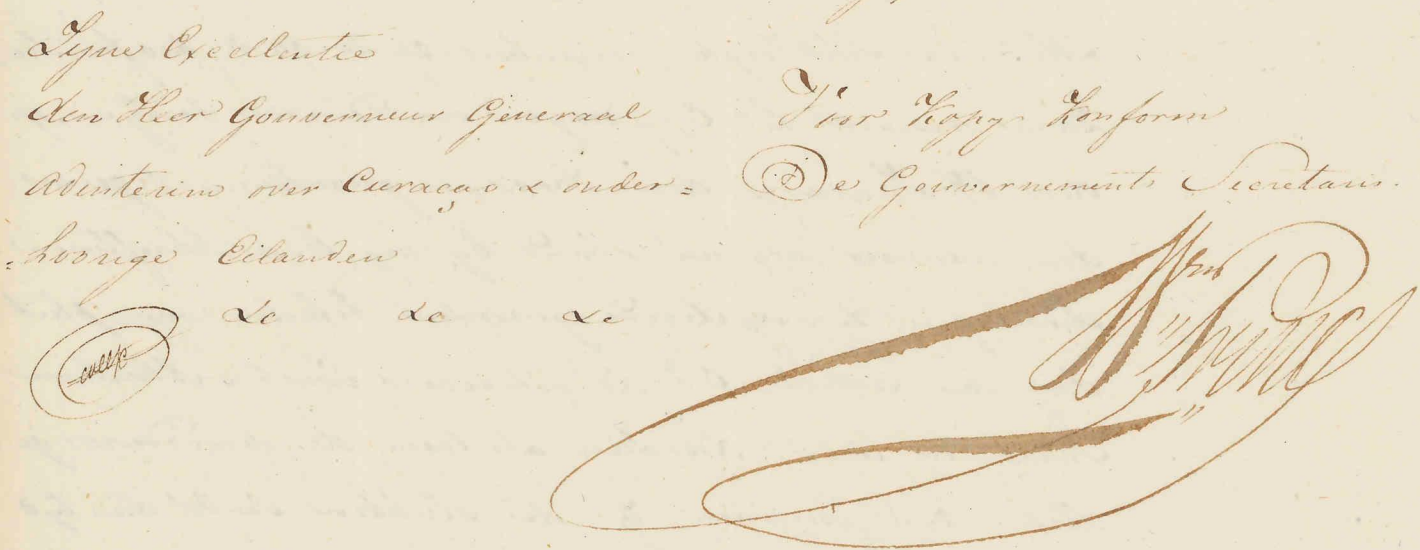 Zyne Excellentie
den Heer Gouverneur Generaal
adinterim over Curaçao & onder=
=hoorige Eilanden
&c &c &c
Voor Kopy Konform
De Gouvernements Secretaris.
Wm